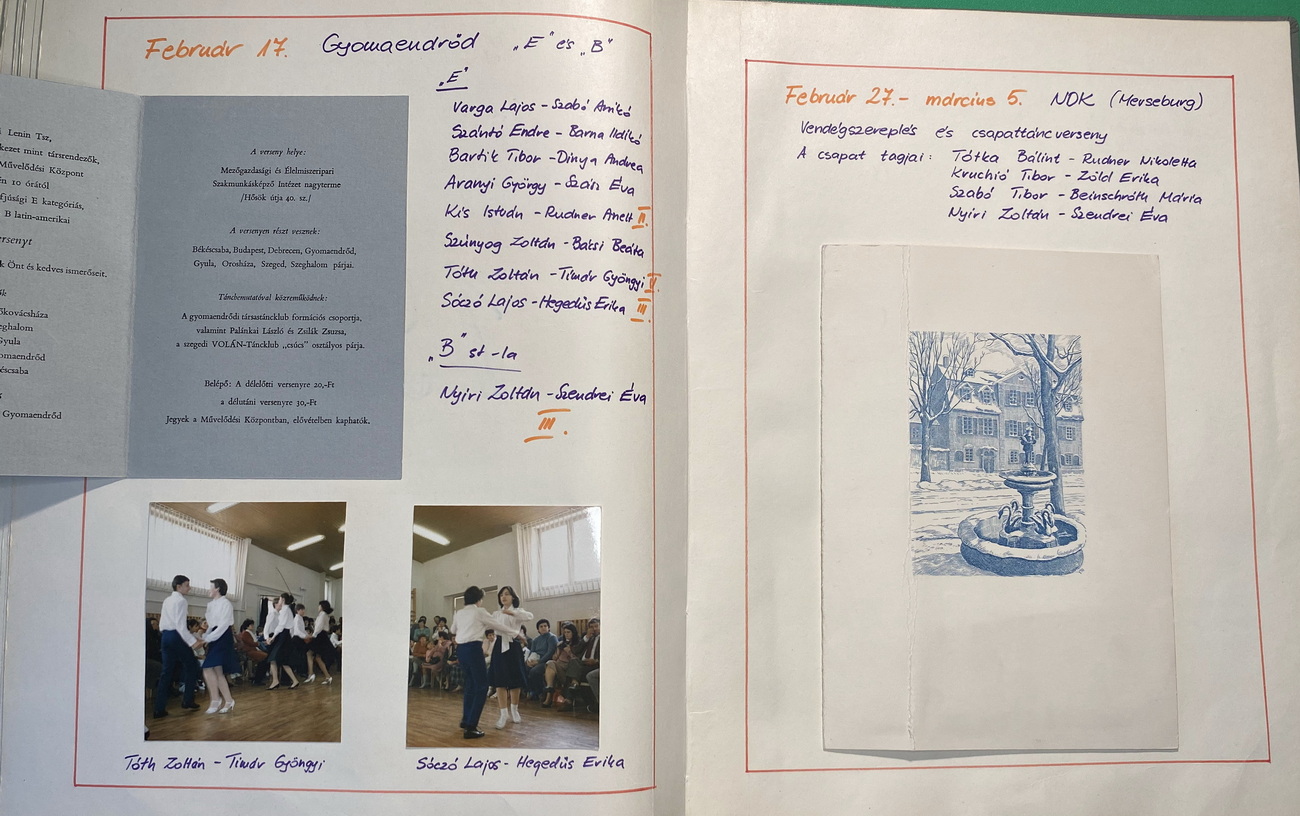 Február 17. Gyomaendrőd „E" és „B"
Lenin Tsz,
kezet mint társrendezők,
Művelődési Központ
én 10 órától
júsági E kategóriás,
B latin-amerikai
ersenyt
k Önt és kedves ismerőseit.
ők
őkovácsháza
eghalom
Gyula
omaendrőd
éscsaba
Gyomaendrőd
A verseny helye:
Mezőgazdasági és Élelmiszeripari
Szakmunkásképző Intézet nagyterme
/Hősök útja 40. sz./
A versenyen részt vesznek:
Békéscsaba, Budapest, Debrecen, Gyomaendrőd,
Gyula, Orosháza, Szeged, Szeghalom párjai.
Táncbemutatóval közreműködnek:
A gyomaendrődi társastáncklub formációs csoportja,
valamint Palánkai László és Zsilák Zsuzsa,
a szegedi VOLÁN-Táncklub „csúcs" osztályos párja.
Belépő: A délelőtti versenyre 20,-Ft
a délutáni versenyre 30,-Ft
Jegyek a Művelődési Központban, elővételben kaphatók.
„E"
Varga Lajos - Szabó Anikó
Szántó Endre - Barna Ildikó
Bartik Tibor - Dinya Andrea
Aranyi György - Szász Éva
Kis István - Rudner Anett II.
Szúnyog Zoltán - Bácsi Beáta
Tóth Zoltán - Tímár Gyöngyi V.
Sóczó Lajos - Hegedüs Erika III.
„B" st-la
Nyiri Zoltán - Szendrei Éva
III.
Tóth Zoltán - Tímár Gyöngyi
Sóczó Lajos - Hegedüs Erika
Február 27. - március 5. NDK (Merseburg)
Vendégszereplés és csapattáncverseny
A csapat tagjai: Tótka Bálint - Rudner Nikoletta
Kruchió Tibor - Zöld Erika
Szabó Tibor - Beinschróth Mária
Nyiri Zoltán - Szendrei Éva